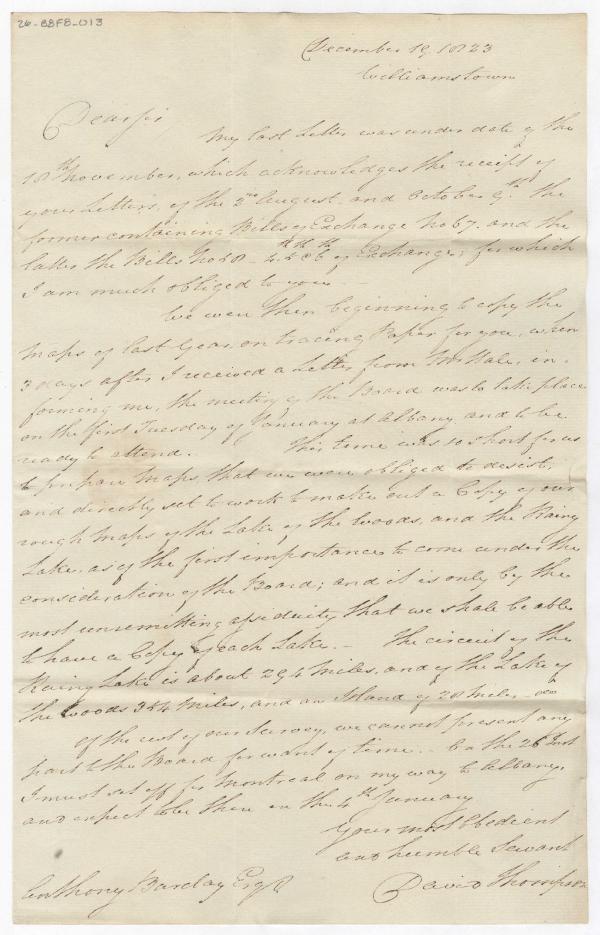 26-BBFB-013
December 19, 1823
Williamstown
Dear Sir
My last Letter was under date of the
18th November, which acknowledges the receipt of
your Letters, of the 2nd August, and October 9th. the
former containing Bills of Exchange No 67. and the
latter the Bills No 68 - 4th 5th & 6th of Exchange; for which
I am much obliged to you. -
We were then beginning to copy the
Maps of last Year, on tracing Paper for you, when
3 days after I received a Letter from Mr Hale, in-
forming me, the meeting of the Board was to take place
on the first Tuesday of January at Albany, and to be
ready to attend. This time was so short for us
to prepare Maps, that we were obliged to desist,
and directly set to work to make out a Copy of our
rough Maps of the Lake of the Woods, and the Rainy
Lake, as of the first importance to come under the
consideration of the Board; and it is only by the
most unremitting assiduity that we shall be able
to have a Copy of each Lake. - The circuit of the
Rainy Lake is about 294 Miles, and of the Lake of
the Woods 384 Miles, and an Island of 28 Miles -
of the rest of our Survey, we cannot present any
part to the Board for want of time. - On the 26 Inst
I must set off for Montreal on my way to Albany,
and expect to be there on the 4th January
Your most Obedient
and humble Servant
David Thompson
Anthony Barclay Esqr